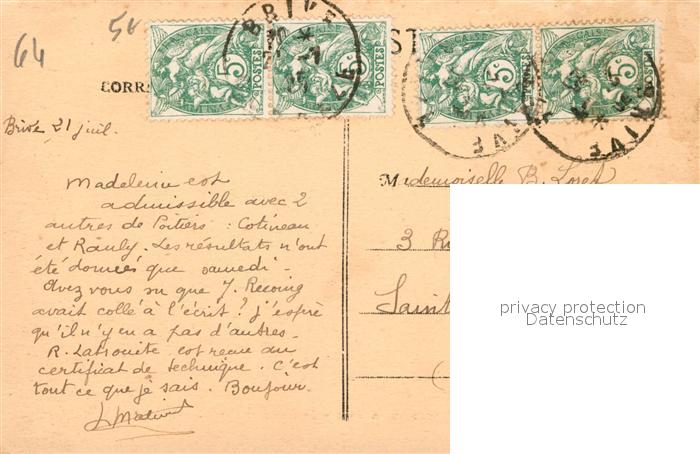 64
5c
BRIVE
BRIVE
FRANÇAISE
5c
POSTES
5c
POSTES
5c
POSTES
5c
POSTES
CORR
ST
Brive 21 juil.
Madeleine est
admissible avec 2
autres de Poitiers : Cotineau
et Rauly. Les résultats n'ont
été donnés que samedi -
Avez vous su que J. Recoing
avait collé à l'écrit ? j'espère
qu'il n'y en a pas d'autres -
R. Latrouite est recue au
certificat de technique. C'est
tout ce que je sais. Bonjour.
Mademoiselle B. Loret
3 Ru
Saint
(
privacy protection
Datenschutz